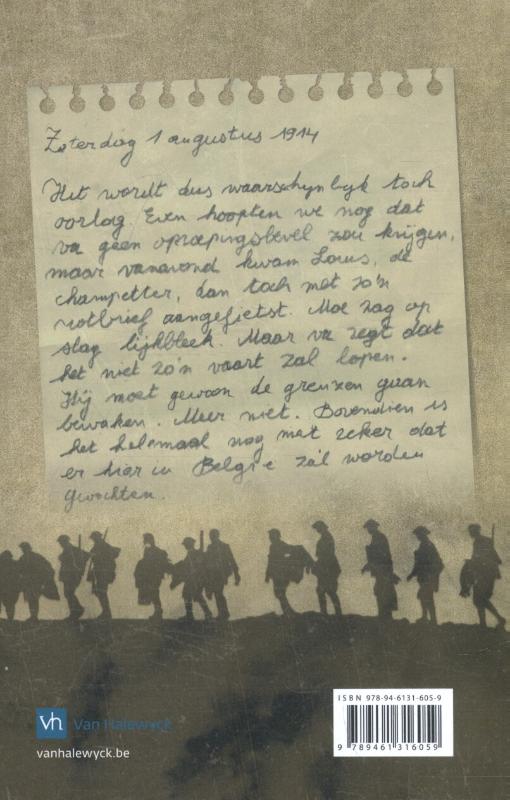 Zaterdag 1 augustus 1914
Het wordt dus waarschynlyk toch
oorlog Even hoopten we nog dat
va geen oproepingsbevel zou krijgen,
maar vanavond kwam Louis, de
champetter, dan toch met zo'n
rotbrief aangefietst. Moe zag op
slag lijkbleek. Maar va zegt dat
het niet zo'n vaart zal lopen.
Hij moet gewoon de grenzen gaan
bewaken. Meer niet. Bovendien is
het helemaal nog niet zeker dat
er hier in België zal worden
gevochten.
ISBN 978-94-6131-605-9
9 789461 316059
vh Van Halewyck
vanhalewyck.be